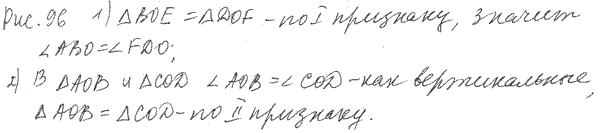 Рис. 96 1) △BOE = △DOF - по I признаку, значит
∠ABO = ∠FDO;
2) В △AOB и △COD ∠AOB = ∠COD - как вертикальные,
△AOB = △COD - по II признаку.